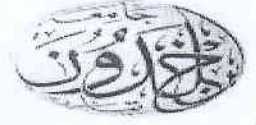 جامعة
ابن خلدون